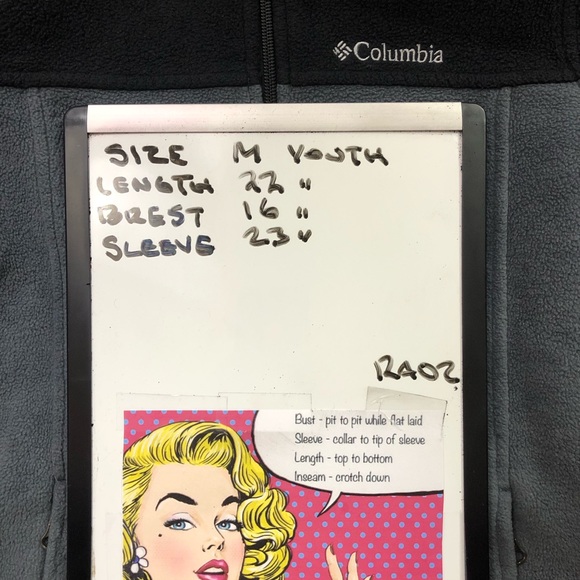 Columbia
SIZE M YOUTH
LENGTH 22 "
BREST 16 "
SLEEVE 23 "
RA02
Bust - pit to pit while flat laid
Sleeve - collar to tip of sleeve
Length - top to bottom
Inseam - crotch down